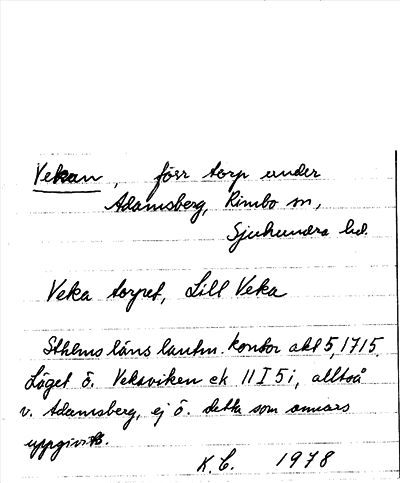 Vekan, förr torp under
Adamsberg, Rimbo sn,
Sjuhundra hd.
Veka torpet, Lill Veka
Sthlms läns lantm. kontor akt 5, 1715.
Läget ö. Vekaviken ek 11I5i, alltså
v. Adamsberg, ej ö. detta som annars
uppgivits.
K. C. 1978